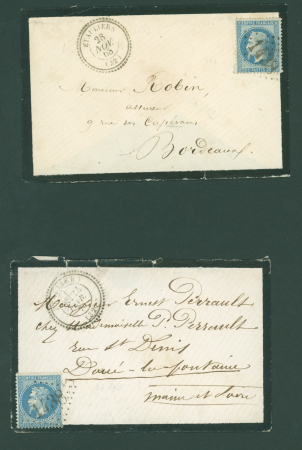 28
NOV.
68
(32)
EMPIRE FRANÇAIS
Monsieur Robin,
assureur
9 rue des Capérans
Bordeaux
Monsieur Ernest Perrault
chez Mademoiselle P. Perrault
rue St Denis
Doué-la-fontaine
maine et Loire